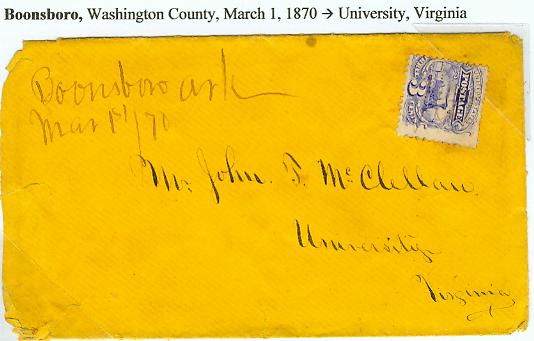 Boonsboro, Washington County, March 1, 1870 → University, Virginia
Boonsboro Ark
Mar 1st/70
Mr John. T. McClellan.
University
Virginia
3